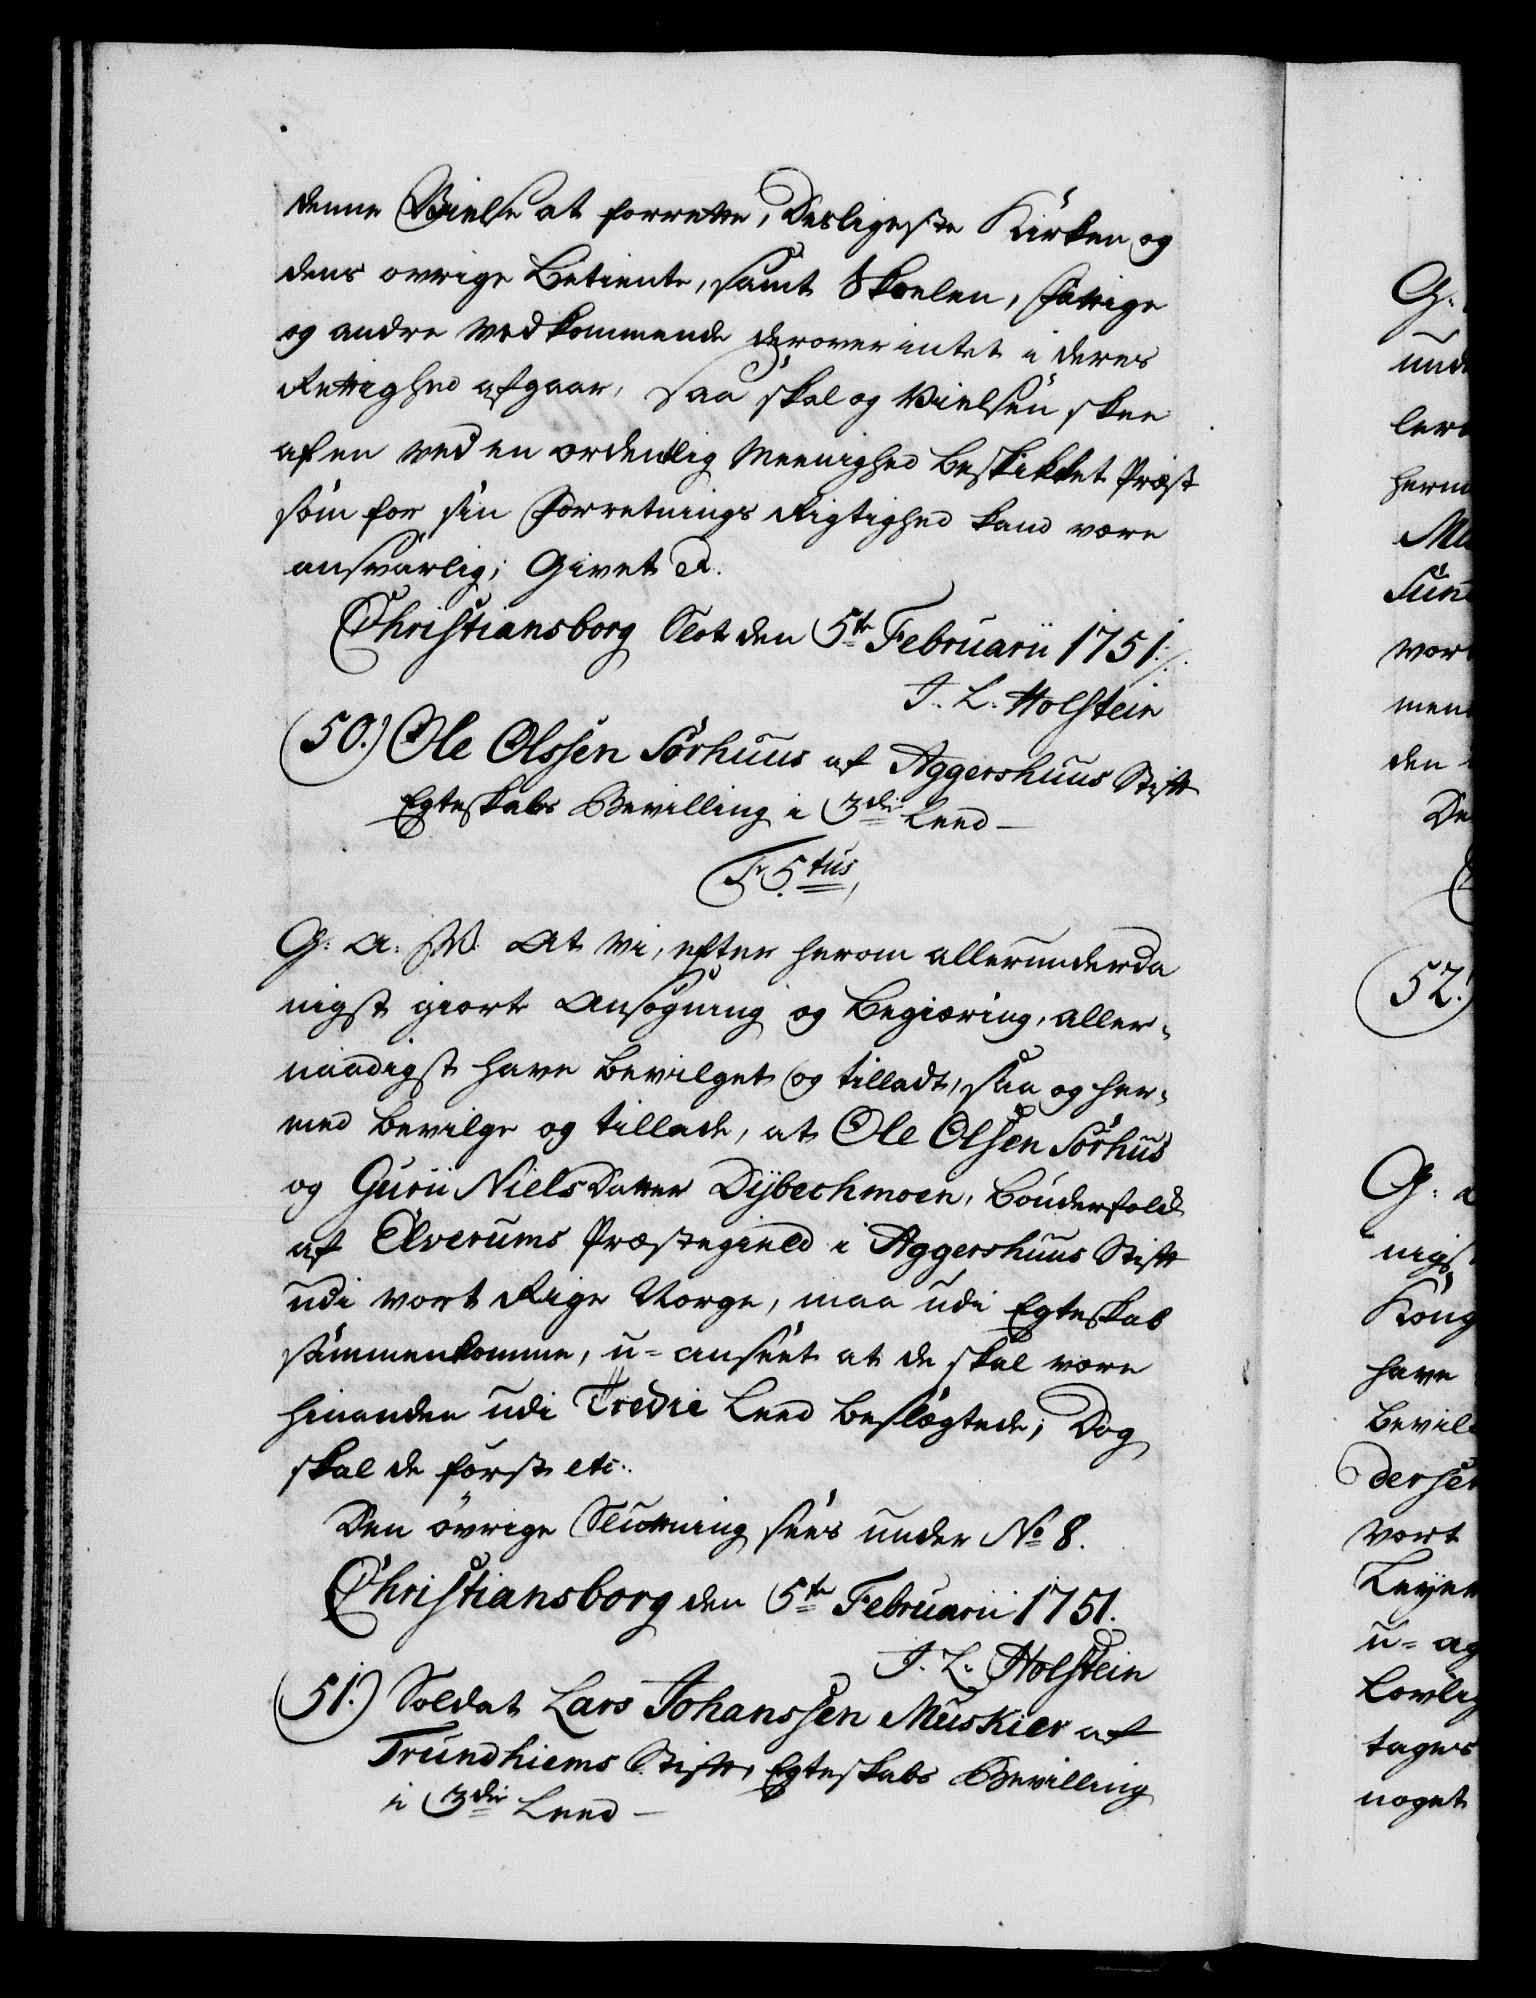 denne Vielse at forrette, Desligeste Kirken og
dens ovrige Betiente, samt Skoelen, Fattige
og andre vedkommende derover intet i deres
Rettighed afgaar, saa skal og Vielsen skee
af en ved en ordentlig Meenighed beskikket Præst
som for sin Forretnings Rigtighed kand være
ansvarlig; Givet
Christiansborg Slot den 5te Februarii 1751 ./.
J. L. Holstein
(50.) Ole Olssen Sörhuus af Aggershuus Stift
Egteskabs Bevilling i 3die Leed –
Fr. 5tus,
G: A: V. At Vi, efter herom allerunderda
nigst giort Ansøgning og Begiæring, aller-
naadigst have bevilget og tilladt, saa og her-
med bevilge og tillade, at Ole Olsen Sörhus
og Gurii Niels Datter Dijbechmoen, Bønderfolck
af Elverums Præstegield i Aggershuus Stift
udi vort Rige Norge, maa udi Egteskab
sammenkomme, u-anseet at de skal være
hinanden udi Tredie Leed beslægtede; Dog
skal de først etc.
Den övrige Slutning sees under No 8.
Christiansborg den 5te Februarii 1751.
J. L. Holstein
(51.) Soldat Lars Johanssen Muskier af
Trundhiems Stift, Egteskabs Bevilling
i 3die Leed –
G.
herm
vor
men
den
De
52.)
G: a
nigs
Kong
have
bevil
derse
vort
Leyer
u-ag
lovlig
tages
noget